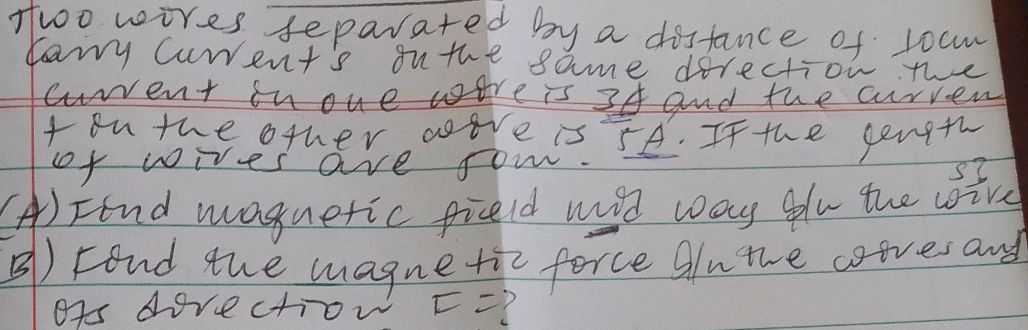 Two wires separated by a distance of 10cm
Carry currents in the same direction. the
current in one wire is 3A and the curren
t in the other wire is 5A. If the length
of wires are 50m.
(A) Find magnetic field mid way b/n the wire
s?
B) Find the magnetic force b/n the wires and
its direction F=?